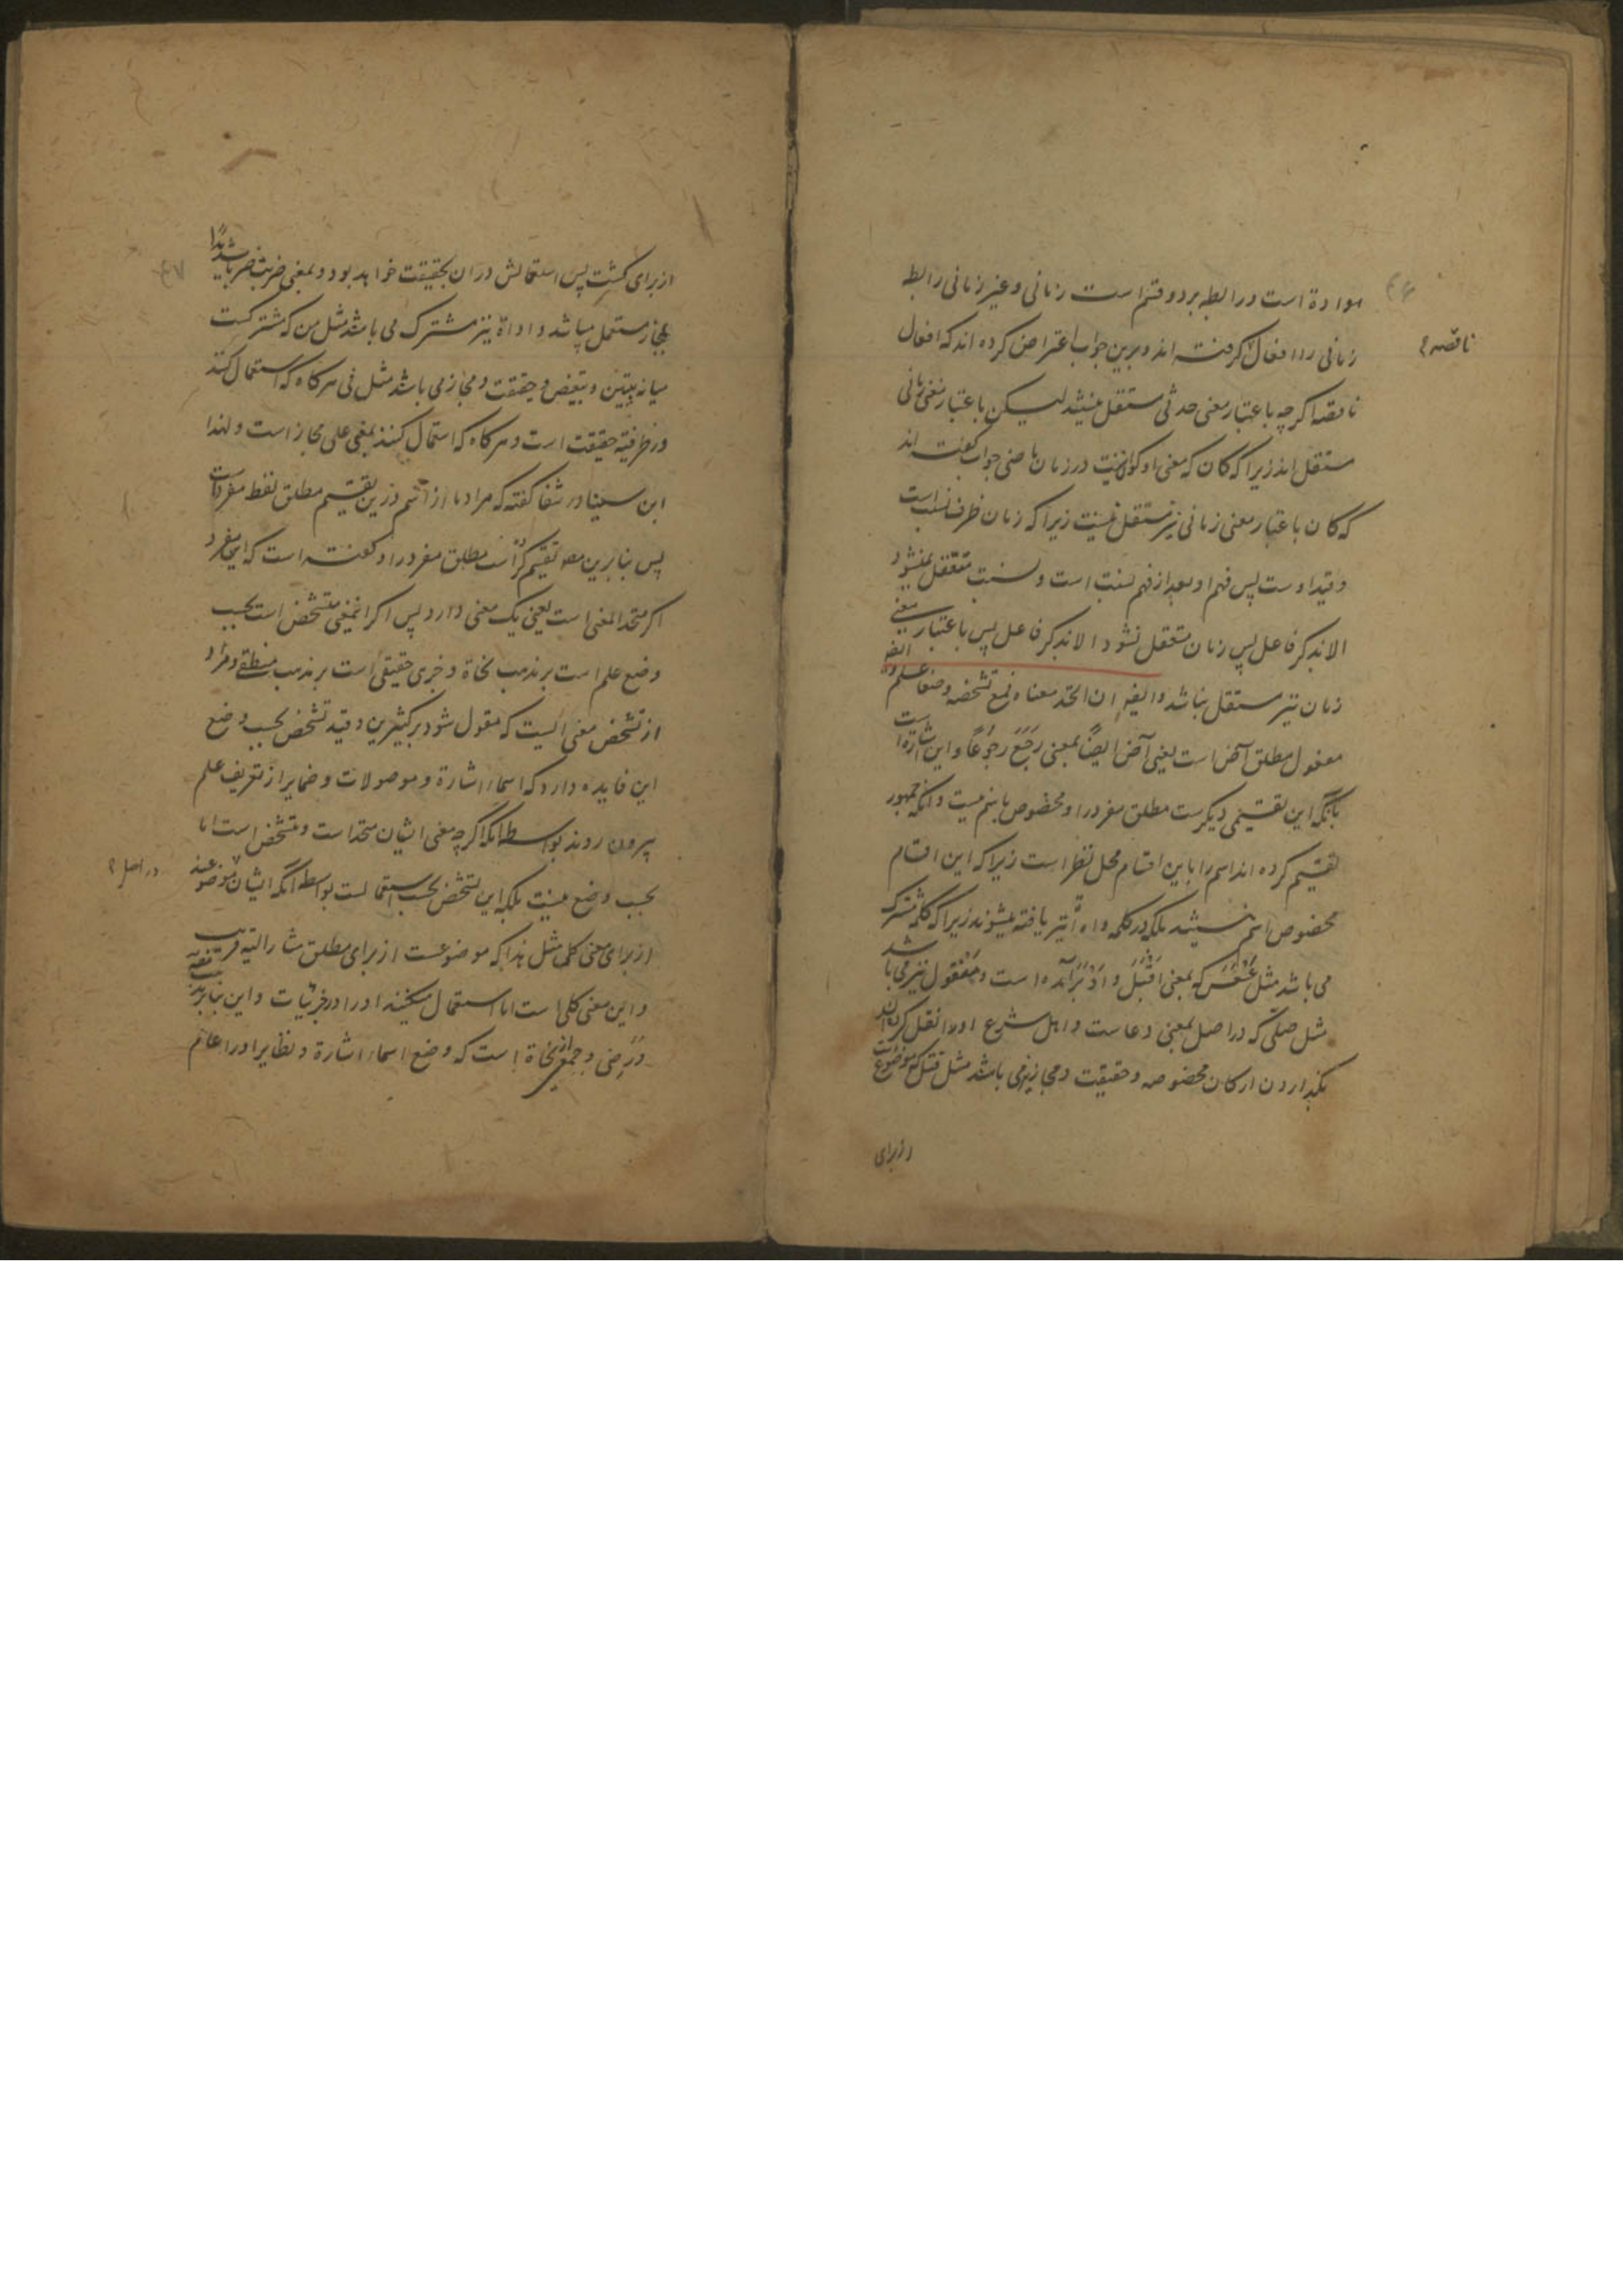 ۴۶
هو اداة است و رابطه بر دو قسم است زمانی و غیر زمانی رابطه
زمانی را افعال گرفته اند و برین جواب اعتراض کرده اند که افعال
ناقصه
ناقصه اگرچه باعتبار معنی حدثی مستقل نیستند لیکن باعتبار معنی زمانی
مستقل اند زیرا که کان که معنی او کونیست در زمان ماضی جواب گفته اند
که کان باعتبار معنی زمانی نیز مستقل نیست زیرا که زمان ظرف نسبت است
و قید اوست پس فهم او بعد از فهم نسبت است و نسبت متعقل نمیشود
الا بذکر فاعل پس زمان متعقل نشود الا بذکر فاعل پس باعتبار معنی
زمان نیز مستقل نباشد و ایضا ان اتحد معناه فمع تشخصه وضعا علم و ایضا
مفعول مطلق آض است یعنی آض ایضًا بمعنی رَجَعَ رجُوعًا و این اشارتست
بآنکه این تقسیمی دیگرست مطلق مفرد را و مخصوص باسم نیست و آنکه جمهور
تقسیم کرده اند اسم را باین اقسام محل نظر است زیرا که این اقسام
مخصوص اسم نیستند بلکه در کلمه و اداة نیز یافته میشوند زیرا که کلمه مشترک
می باشد مثل عَسْعَسَ که بمعنی اَقْبَلَ و اَدْبَرَ آمده است و منقول نیز می باشد
مثل صلّی که در اصل بمعنی دعاست و اهل شرع او را نقل کرده اند
بگذاردن ارکان مخصوصه و حقیقت و مجاز نیز می باشد مثل قتل که موضوعست
ازبرای
۴۷
ازبرای کشتن پس استعمالش در ان بحقیقت خواهد بود و بمعنی ضرب ضربا شدیدًا
بمجاز مستعمل میباشد و اداة نیز مشترک می باشد مثل من که مشترکست
میانه تبیین و تبعیض و حقیقت و مجاز می باشد مثل فی هرگاه که استعمال کنند
در ظرفیة حقیقت است و هرگاه که استعمال کنند بمعنی علی مجاز است و لهذا
ابن سینا در شفا گفته که مراد ما از اسم درین تقسیم مطلق لفظ مفردات
پس بنابرین مصـ تقسیم کرده است مطلق مفرد را و گفته است که این مفرد
اگر متحد المعنی است یعنی یک معنی دارد پس اگر آنمعنی متشخص است بحسب
وضع علم است بر مذهب نحاة و جزی حقیقی است بر مذهب منطقی و مراد
از تشخص معنی آنست که مقول نشود بر کثیرین و قید تشخص بحسب وضع
این فایده دارد که اسماء اشارة و موصولات و ضمایر از تعریف علم
بیرون روند بواسطه آنکه اگرچه معنی ایشان متحد است و متشخص است اما
بحسب وضع نیست بلکه این تشخص بحسب استعمالست بواسطه آنکه ایشان موضوعند
در اصل
ازبرای معنی کلی مثل هذا که موضوعست ازبرای مطلق مشار الیه قریب
و این معنی کلی است اما استعمال میکنند او را در جزئیات و این بنابر مذهب
رضی و جمعی از نحاة است که وضع اسماء اشارة و نظایر او را عام